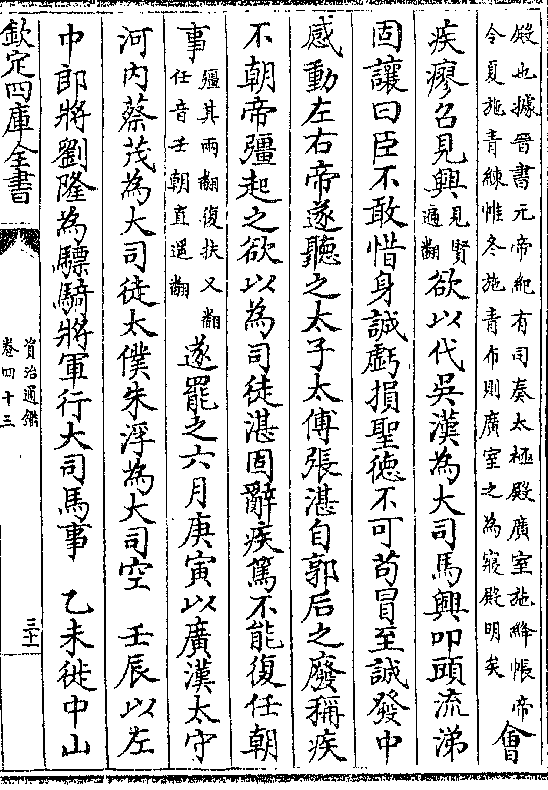 殿也據晉書元帝紀有司奏太極殿廣室施絳帳帝
令夏施青練帷冬施青布則廣室之為寢殿明矣
會
疾瘳召見興
見賢
遍翻
欲以代吳漢為大司馬興叩頭流涕
固讓曰臣不敢惜身誠虧損聖德不可苟冒至誠發中
感動左右帝遂聽之太子太傅張湛自郭后之廢稱疾
不朝帝彊起之欲以為司徒湛固辭疾篤不能復任朝
事
彊其兩翻復扶又翻
任音壬朝直遥翻
遂罷之六月庚寅以廣漢太守
河内蔡茂為大司徒太僕朱浮為大司空 壬辰以左
中郎將劉隆為驃騎將軍行大司馬事 乙未徙中山
欽定四庫全書
資治通鑑
卷四十三
三十一